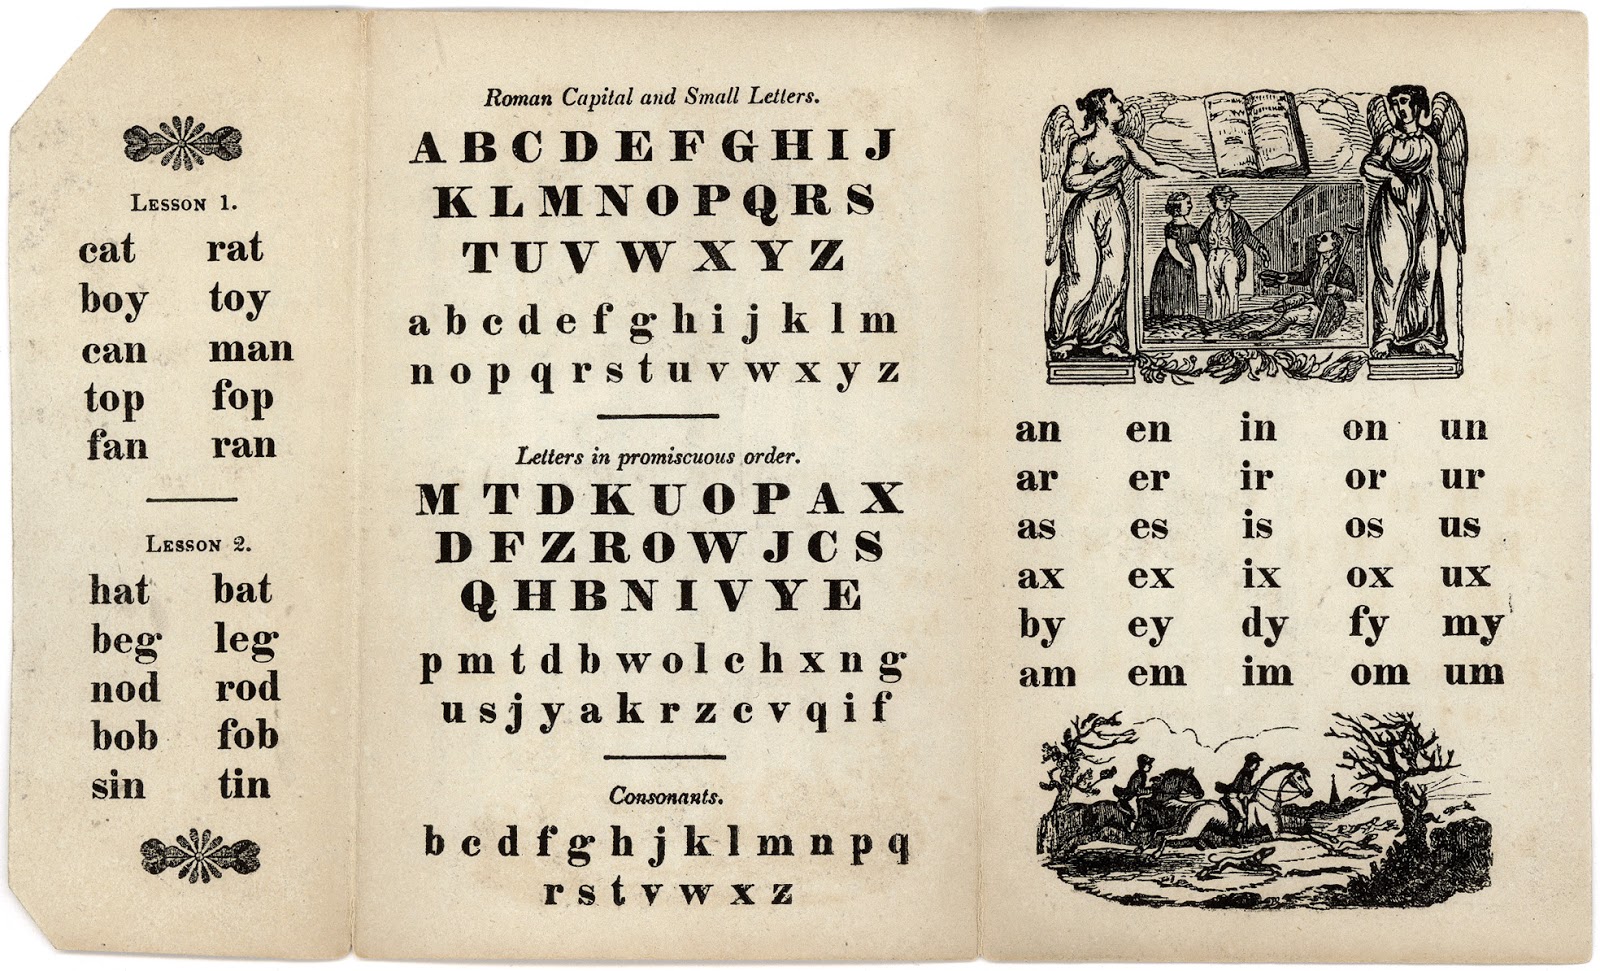 LESSON 1.
cat rat
boy toy
can man
top fop
fan ran
LESSON 2.
hat bat
beg leg
nod rod
bob fob
sin tin
Roman Capital and Small Letters.
A B C D E F G H I J
K L M N O P Q R S
T U V W X Y Z
a b c d e f g h i j k l m
n o p q r s t u v w x y z
Letters in promiscuous order.
M T D K U O P A X
D F Z R O W J C S
Q H B N I V Y E
p m t d b w o l c h x n g
u s j y a k r z c v q i f
Consonants.
b c d f g h j k l m n p q
r s t v w x z
an en in on un
ar er ir or ur
as es is os us
ax ex ix ox ux
by ey dy fy my
am em im om um